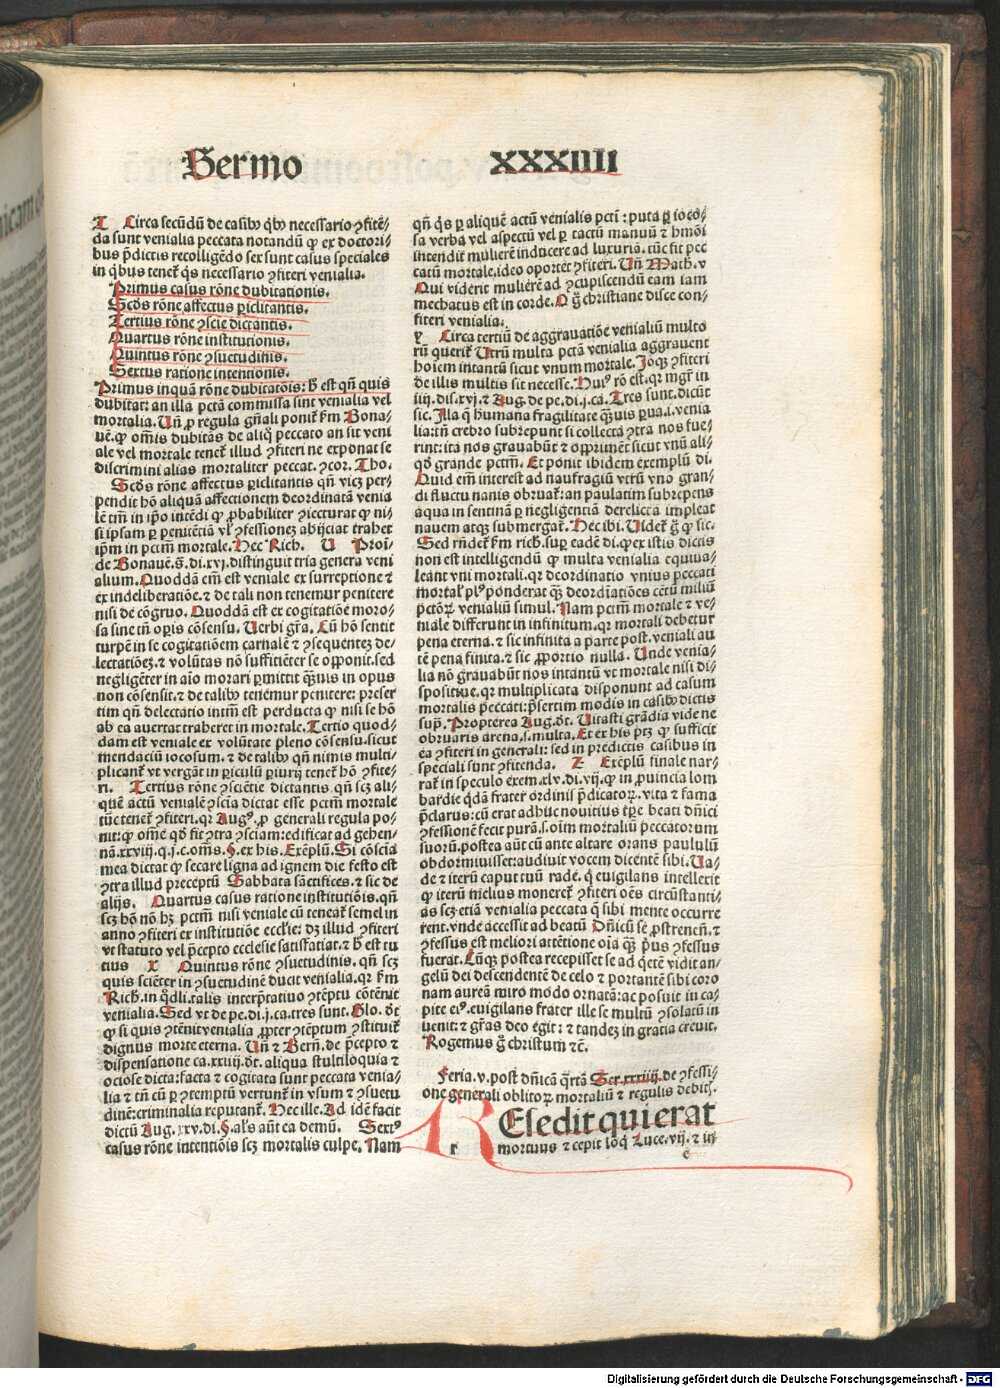 Sermo XXXIIII
T Circa secūdū de casibꝰ qͥbꝰ necessario ꝯfitē⸗
da sunt venialia peccata notandū ꝙ ex doctori⸗
bus p̄dictis recolligēdo sex sunt casus speciales
in qͥbus tenet̄ qͥs necessario ꝯfiteri venialia.
Primus casus rōne dubitationis.
Scd̄s rōne affectus ꝑiclitantis.
Tertius rōne ꝯscie dictantis.
Quartus rōne institutionis.
Quintus rōne ꝯsuetudinis.
Sextus ratione intentionis.
Primus inquā rōne dubitatōis: h̄ est qn̄ quis
dubitat: an illa pctā commissa sint venialia vel
mortalia. Vn̄ ꝓ regula gn̄ali ponit̄ ẜm Bona⸗
uē. ꝙ om̄is dubitās de aliq̊ peccato an sit veni
ale vel mortale tenet̄ illud ꝯfiteri ne exponat se
discrimini alias mortaliter peccat. ꝯcor. Tho.
Scd̄s rōne affectus ꝑiclitantis qn̄ vicꝫ per⸗
pendit hō aliquā affectionem deordinatā venia
lē tm̄ in ip̄o intēdi ꝙ ꝓbabiliter ꝯiecturat ꝙ ni⸗
si ipsam ꝑ penitētiā vl̓ ꝯfessionēꝫ abijciat trahet
ip̄m in pctm̄ mortale. Hec Rich. V Proī⸗
de Bonauē. s̄. di. xvj. distinguit tria genera veni
alium. Quoddā em̄ est veniale ex surreptione ⁊
ex indeliberatiōe. ⁊ de tali non tenemur penitere
nisi de cōgruo. Quoddā est ex cogitatiōe moro⸗
sa sine tn̄ oꝑis cōsensu. Verbi gr̄a. Cū hō sentit
turpēm in se cogitatiōem carnalē ⁊ ꝯsequenteꝫ de⸗
lectatiōeꝫ. ⁊ volūtas nō suffitiēter se opponit. sed
negligēter in aīo morari ꝑmittit qͣuis in opus
non cōsensit. ⁊ de talibꝰ tenemur penitere: preser
tim qn̄ delectatio intm̄ est perducta ꝙ nisi se hō
ab ea auertat traheret in mortale. Tertio quod⸗
dam est veniale ex volūtate pleno cōsensu. sicut
mendaciū iocosum. ⁊ de talibꝰ qn̄ nimis multi⸗
plicant̄ vt vergāt in ꝑiculū ꝑiurij tenet̄ hō ꝯfite⸗
ri. Tertius rōne ꝯsciētie dictantis qn̄ scꝫ ali⸗
quē actū venialē ꝯscīa dictat esse pctm̄ mortale
tūc tenet̄ ꝯfiteri. qꝛ Augꝰ. ꝓ generali regula po⸗
nit: ꝙ om̄e qd̓ fit ꝯtra ꝯsciam: edificat ad gehen⸗
nā. xxviij. q. j. c. om̄s. §. ex his. Exēplū. Si cōscia
mea dictat ꝙ secare ligna ad ignem die festo est
ꝯtra illud preceptū Sabbata sāctifices. ⁊ sic de
alijs. Quartus casus ratione institutiōis. qn̄
scꝫ hō nō hꝫ pctm̄ nisi veniale cū teneat̄ semel in
anno ꝯfiteri ex institutiōe eccl̓ie: dꝫ illud ꝯfiteri
vt statuto vel p̄cepto ecclesie satisfatiat. ⁊ h̄ est tu
tius x Quintus rōne ꝯsuetudinis. qn̄ scꝫ
quis sciēter in ꝯsuetudinē ducit venialia. qꝛ ẜm
Rich. in q̊dli. talis interp̄tatiuo ꝯtēptu cōtēnit
venialia. Sed vt de pe. di. j. ca. tres sunt. Glo. dt̄
ꝙ si quis ꝯtēnit venialia ꝓpter ꝯtēptum ꝯstituit̄
dignus morte eterna. Vn̄ ⁊ Bern̄. de p̄cepto ⁊
dispensatione ca. xxiiij. dt̄. aliqua stultiloquia ⁊
ociose dicta: facta ⁊ cogitata sunt peccata venia⸗
lia ⁊ tn̄ cū ꝑ ꝯtemptū vertunt̄ in vsum ⁊ ꝯsuetu
dinē: criminalia reputant̄. Hec ille. Ad idē facit
dictū Aug. xxv. di. §. al̓s aut̄ ea demū. Sextꝰ
casus rōne intentiōis scꝫ mortalis culpe. Nam
qn̄ qͥs ꝑ aliquē actū venialis pcti: puta ꝑ ioco⸗
sa verba vel aspectū vel ꝑ tactū manuū ⁊ hmōi
intendit mulierē inducere ad luxuriā: tūc fit pec
catū mortale. ideo oportet ꝯfiteri. Vn̄ Math. v
Qui viderit mulierē ad ꝯcupiscendū eam iam
mechatus est in corde. O gͦ christiane disce con⸗
fiteri venialia.
y Circa tertiū de aggrauatiōe venialiū multo
rū querit̄ Vtrū multa pctā venialia aggrauent
hoiem intantū sicut vnum mortale. Ioqꝫ ꝯfiteri
de illis multis sit necesse. Huiꝰ rō est. qꝛ mgr̄ in
iiij. dis. xvj. ⁊ Aug. de pe. di. j. ca. Tres sunt. dicūt
sic. Illa q̄ humana fragilitate qͣuis ꝑua. i. venia
lia: tn̄ crebro subrepunt si collecta ꝯtra nos fue⸗
rint: ita nos grauabūt ⁊ opprimēt sicut vnū ali⸗
qd̓ grande pctm̄. Et ponit ibidem exemplū di.
Quid em̄ interest ad naufragiū vtrū vno gran⸗
di fluctu nauis obruat̄: an paulatim subrepens
aqua in sentinā ꝑ negligentiā derelicta impleat
nauem atqꝫ submergat̄. Hec ibi. Videt̄ gͦ ꝙ sic.
Sed rn̄det̄ ẜm rich. suꝑ eadē di. ꝙ ex istis dictis
non est intelligendū ꝙ multa venialia equiua⸗
leant vni mortali. qꝛ deordinatio vnius peccati
mortal̓ plꝰ ponderat qͣꝫ deordiatiōes cētū miliū
pctōꝝ venialiū simul. Nam pctm̄ mortale ⁊ ve⸗
niale differunt in infinitum. qꝛ mortali debetur
pena eterna. ⁊ sic infinita a parte post. veniali au
tē pena finita. ⁊ sic ꝓportio nulla. Vnde venia⸗
lia nō grauabūt nos intantū vt mortale nisi di⸗
spositiue. qꝛ multiplicata disponunt ad casum
mortalis peccati: p̄sertim modis in casibꝰ dictis
sup̄. Propterea Aug. dt̄. Vitasti grādia vide ne
obruaris arena. s. multa. Et ex his ptꝫ ꝙ sufficit
ea ꝯfiteri in generali: sed in predictis casibus in
speciali sunt ꝯfitenda. Z Exēplū finale nar⸗
rat̄ in speculo exem. xlv. di. vij. ꝙ in ꝓuincia lom
bardie qͥdā frater ordinis p̄dicatoꝝ. vita ⁊ fama
p̄clarus: cū erat adhuc nouitius tꝑe beati dn̄ici
ꝯfessionē fecit purā. s. oim mortaliū peccatorum
suorū. postea aūt cū ante altare orans paululū
obdormiuisset: audiuit vocem dicentē sibi. Va⸗
de ⁊ iterū caput tuū rade. q̄ euigilans intellexit
ꝙ iterū melius moneret̄ ꝯfiteri oēs circūstanti⸗
as scꝫ etiā venialia peccata q̄ sibi mente occurre
rent. vnde accessit ad beatū Dn̄icū se ꝓstrenēs. ⁊
ꝯfessus est meliori attētione oīa qͣꝫ p̄us ꝯfessus
fuerat. Cūqꝫ postea recepisset se ad q̄tē vidit an⸗
gelū dei descendentē de celo ⁊ portantē sibi coro
nam aureā miro modo ornatā: ac posuit in ca⸗
pite eiꝰ. euigilans frater ille se multū ꝯsolatū in
uenit: ⁊ gr̄as deo egit: ⁊ tandeꝫ in gratia creuit.
Rogemus gͦ christum ⁊c̄.
Feria. v. post dn̄icā qͣrtā Ser. xxxiiij. de ꝯfessi⸗
one generali oblitoꝝ mortaliū ⁊ regulis debit̓.
REsedit qui erat
r mortuus ⁊ cepit loq̄ Luce. vij. ⁊ in
Digitalisierung gefördert durch die Deutsche Forschungsgemeinschaft - DFG